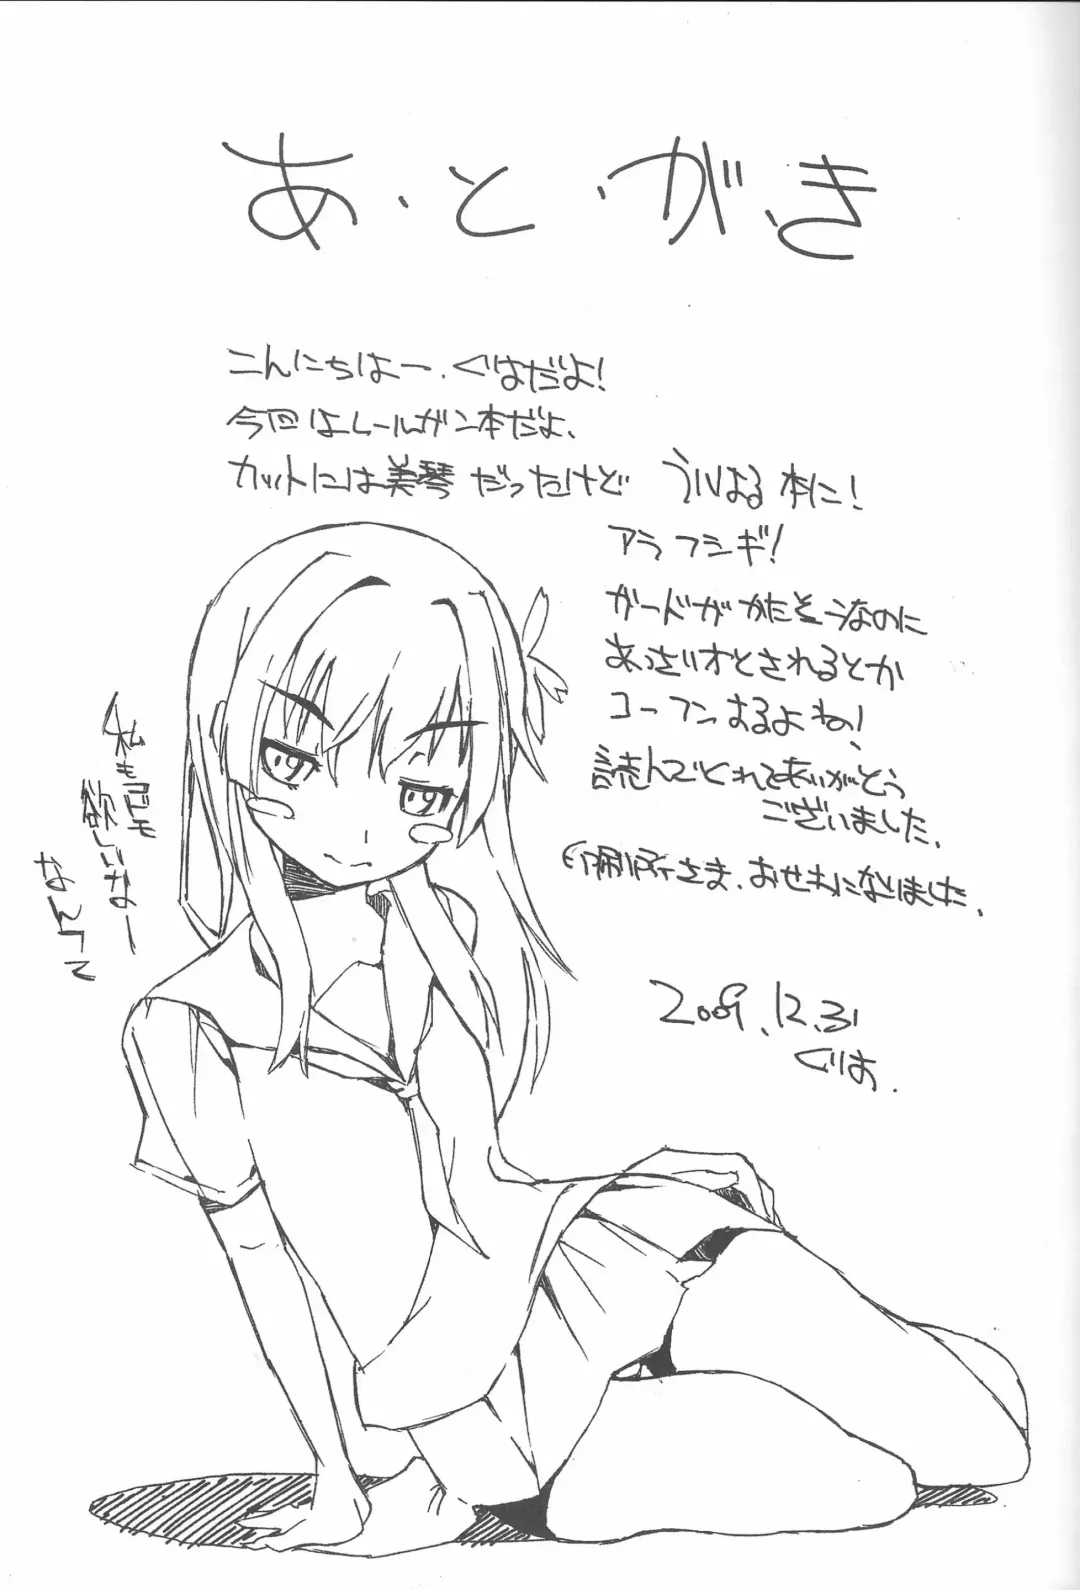 あ・と・がき
こんにちはー、ぐりおだよ!
今回はレールガン本だよ、
カットには美琴だったけど ういはる本に!
アラフシギ!
ガードがかたそうなのに
あっさりオとされるとか
コーフンするよね!
読んでくれてありがとう
ございました。
印刷所さま、おせわになりました。
2009.12.31
ぐりお.
私も
欲しいなー
なんて